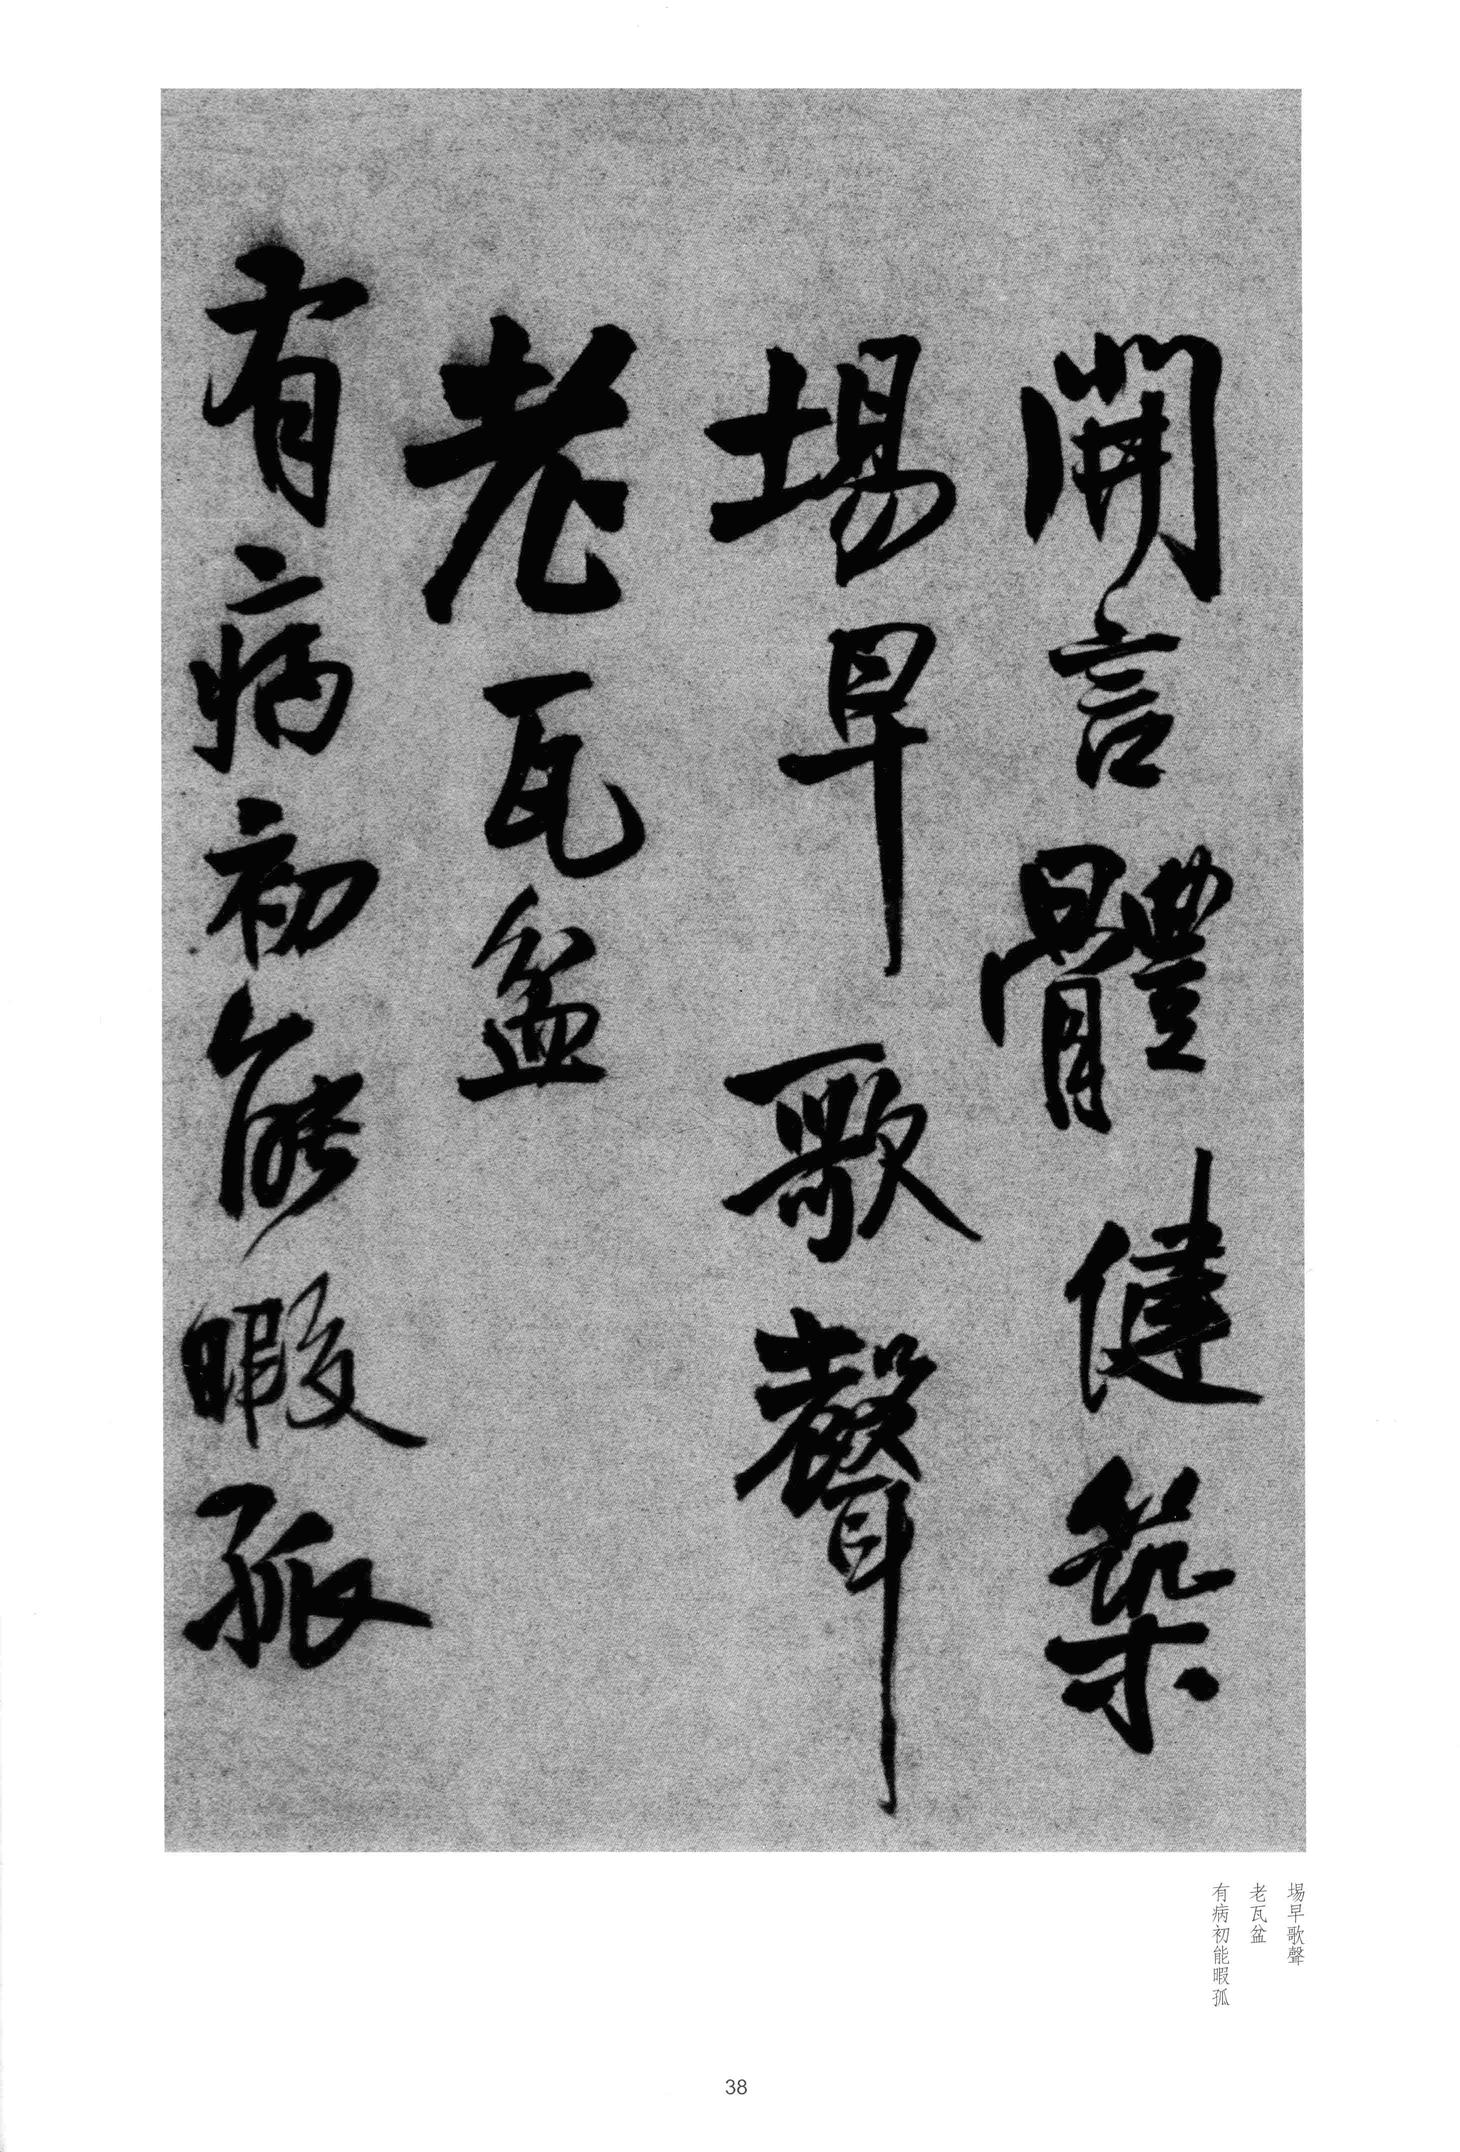 開言體健築
場早歌聲
老瓦盆
有病初能暇孤
場早歌聲
老瓦盆
有病初能暇孤
38